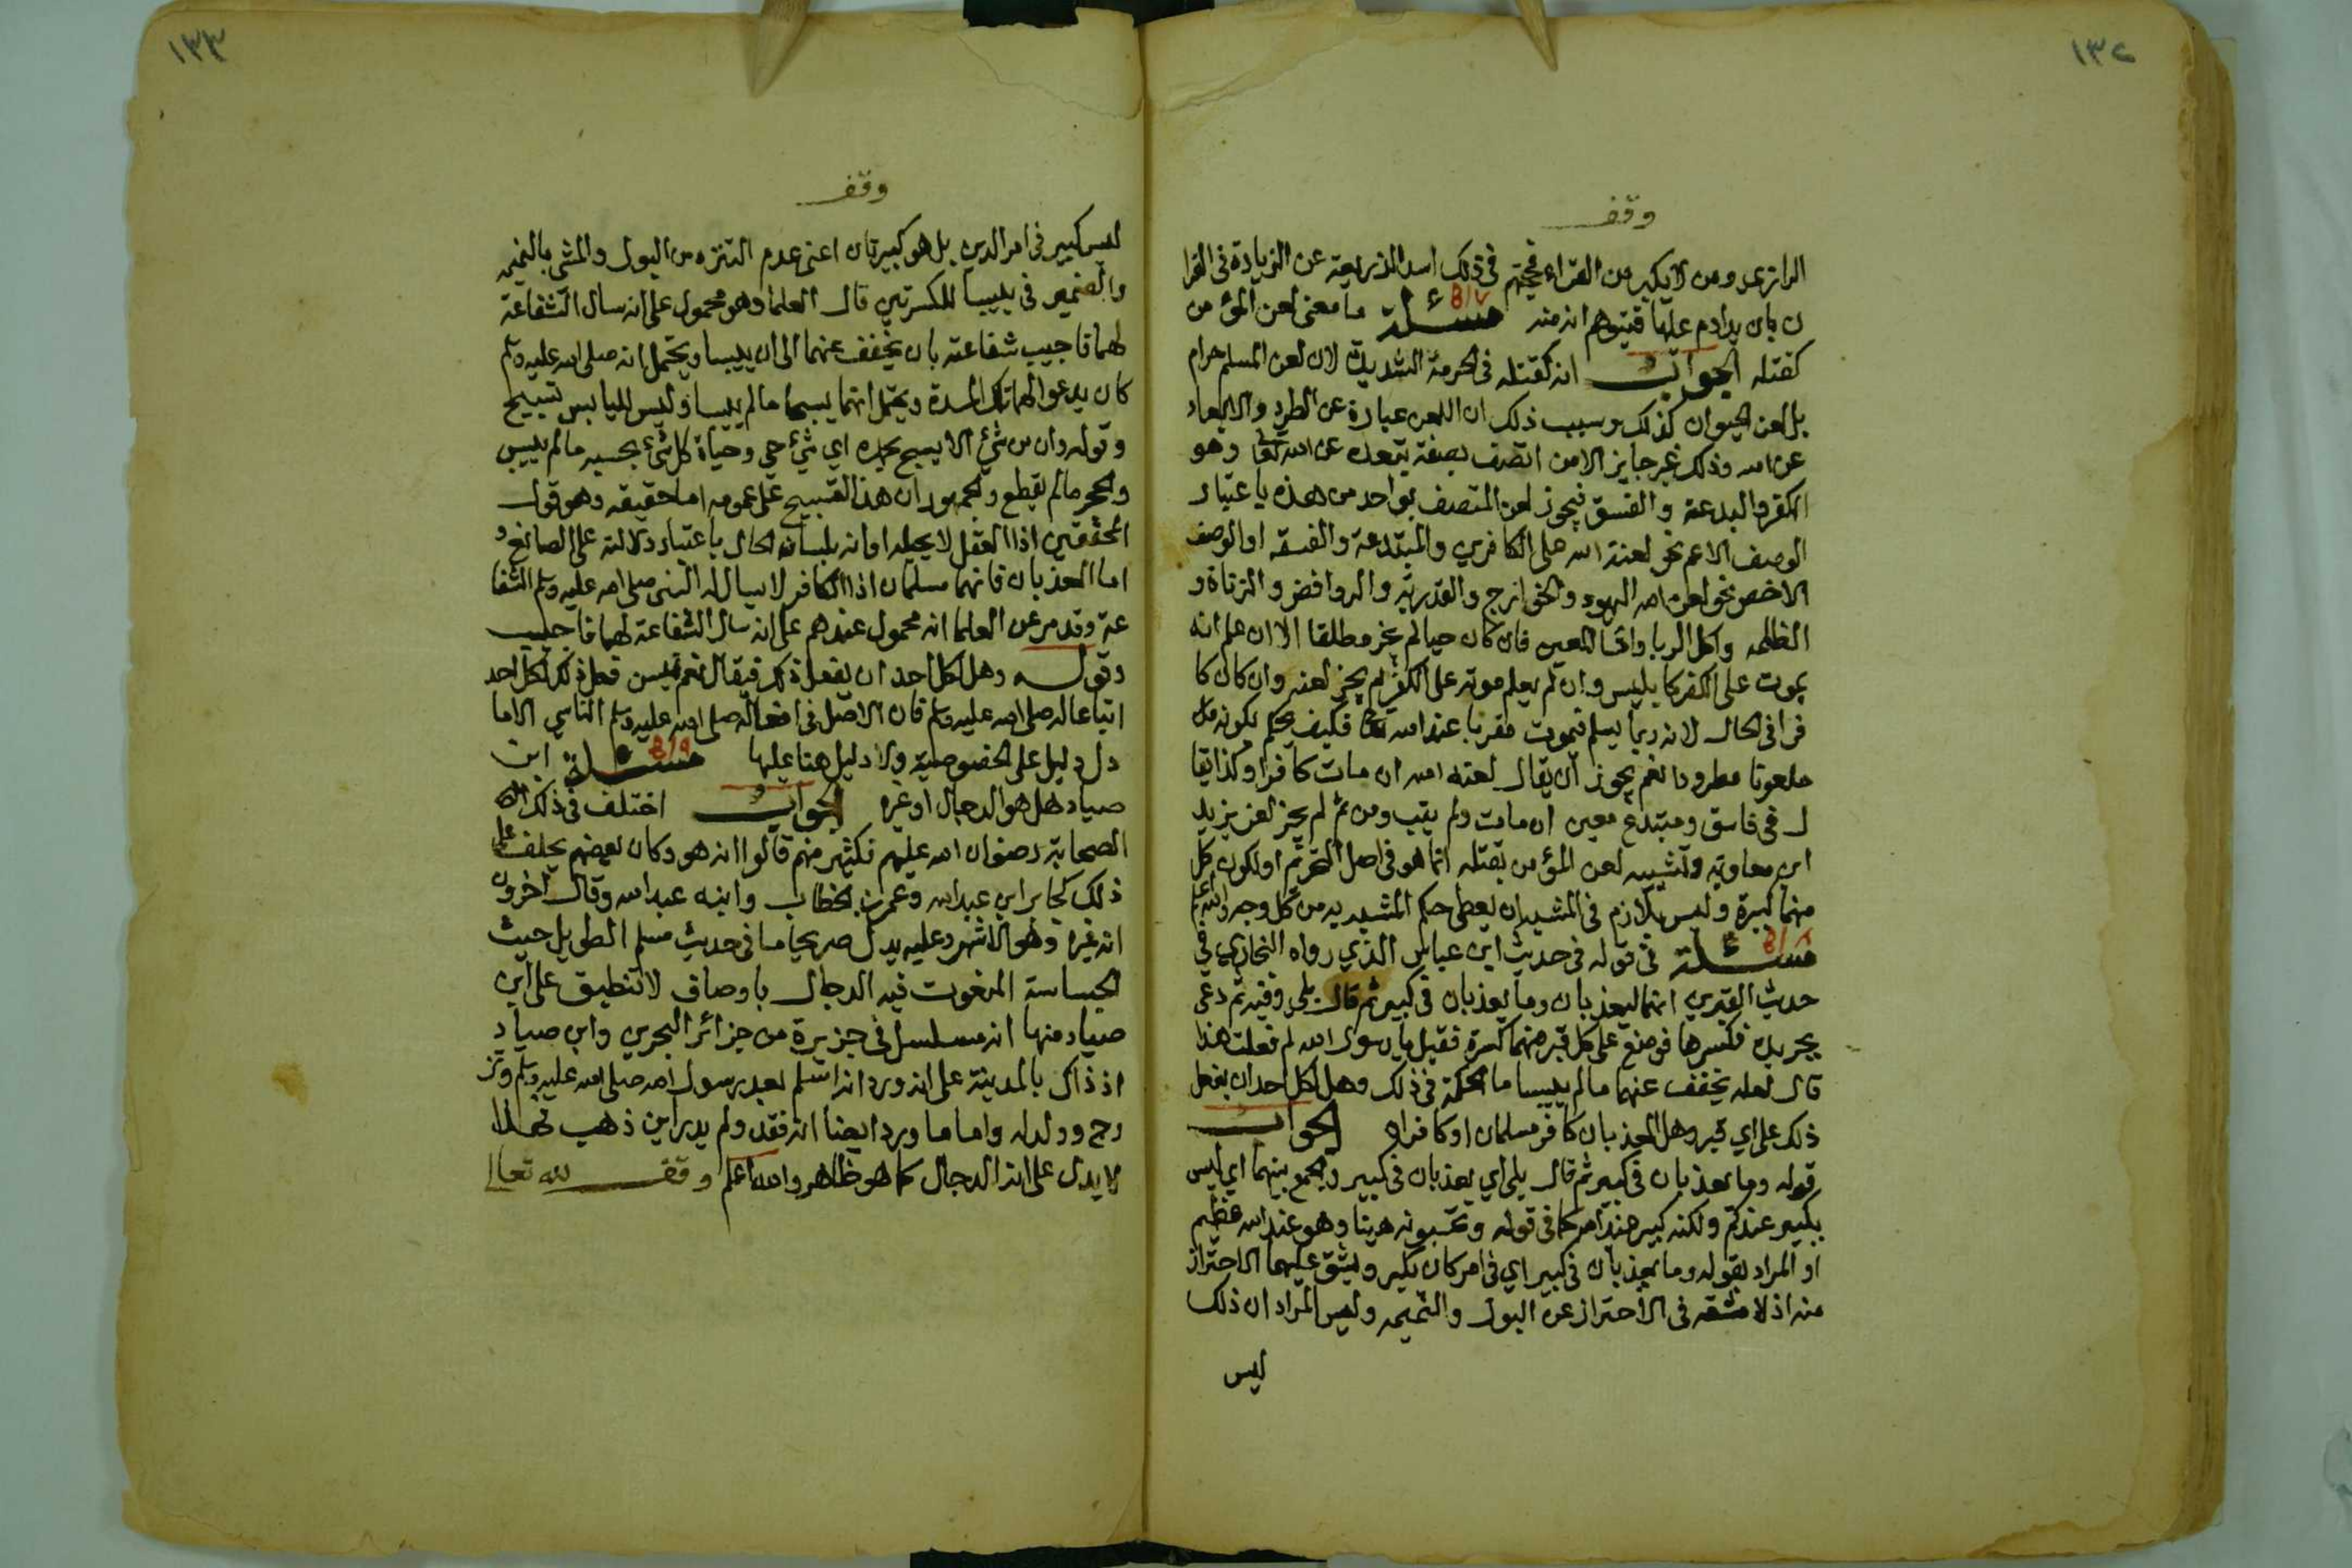 ١٣٢
وقف
الرازي ومن لا يكبر من القراء فحجتهم في ذلك اسد الذريعة عن الزيادة في القرا
ن بان يداوم عليها فيتوهم انه منه مسئلة ٨١٧ ما معنى لعن المؤمن
كقتله الجواب انه كقتله في الحرمة الشديدة لان لعن المسلم حرام
بل لعن الحيوان كذلك وسبب ذلك ان اللعن عبارة عن الطرد والابعاد
عن الله وذلك غير جايز الا من اتصف بصفة تبعده عن الله تعالى وهو
الكفر والبدعة والفسق فيجوز لعن المتصف بواحد من هذه باعتبار
الوصف الاعم نحو لعنة الله على الكافرين والمبتدعة والفسقه او الوصف
الاخص نحو لعن الله اليهود والخوارج والقدرية والروافض والزناة و
الظلمه واكل الربا واما المعين فان كان حيا لم يجز مطلقا الا ان علم انه
يموت على الكفر كابليس وان لم يعلم موته على الكفر لم يجز لعنه وان كان كا
فرا في الحال لانه ربما يسلم فيموت مقربا عند الله تعالى فكيف يحكم بكونه
ملعونا مطرودا نعم يجوز ان يقال لعنه الله ان مات كافرا وكذا يقا
ل في فاسق ومبتدع معين ان مات ولم يتب ومن ثم لم يجز لعن يزيد
ابن معاوية وتشبيه لعن المؤمن بقتله انما هو في اصل التحريم او لكون كل
منهما كبيرة وليس بلازم في المشبه ان يعطى حكم المشبه به من كل وجه والله اعلم
مسئلة ٨١٨ في قوله في حديث ابن عباس الذي رواه البخاري في
حديث القبرين انهما ليعذبان وما يعذبان في كبير ثم قال بلى وفيه ثم دعى
بجريدة فكسرها فوضع على كل قبر منهما كسرة فقيل يا رسول الله لم فعلت هذا
قال لعله يخفف عنهما ما لم ييبسا ما الحكمة في ذلك وهل لكل احد ان يفعل
ذلك على اي قبر وهل المعذبان كافر مسلمان او كافران الجواب
قوله وما يعذبان في كبير ثم قال بلى اي يعذبان في كبير والجمع بينهما اي ليس
بكبير عندكم ولكنه كبير عند الله كما في قوله وتحسبونه هينا وهو عند الله عظيم
او المراد بقوله وما يعذبان في كبير اي في امر كان يكبر ويشق عليهما الاحتراز
منه اذ لا مشقه في الاحتراز عن البول والنميمه وليس المراد ان ذلك
ليس
١٣٣
وقف
ليس كبير في امر الدين بل هو كبيرتان اعني عدم التنزه من البول والمشي بالنميمه
والضمير في ييبسا للكسرتين قال العلما وهو محمول على انه سال الشفاعة
لهما فاجيب شفاعته بان يخفف عنهما الى ان ييبسا ويحتمل انه صلى الله عليه وسلم
كان يدعو لهما تلك المدة ويحتمل انهما يسبحا ما لم ييبسا وليس لليابس تسبيح
وقوله وان من شيء الا يسبح بحمده اي شيء حي وحياة كل شيء بحسبه ما لم ييبس
والحجر ما لم يقطع والجمهور ان هذا التسبيح على عمومه اما حقيقه وهو قول
المحققين اذا العقل لا يحيله او انه بلسان الحال باعتبار دلالته على الصانع و
اما المعذبان فانهما مسلمان اذا الكافر لا يسال له النبي صلى الله عليه وسلم الشفا
عة وقد مر عن العلما انه محمول عندهم على انه سال الشفاعة لهما فاجيب
وقوله وهل لكل احد ان يفعل ذلك فيقال نعم يسن فعل ذلك لكل احد
اتباعا له صلى الله عليه وسلم فان الاصل في افعاله صلى الله عليه وسلم التاسي الا ما
دل دليل على الخصوصية ولا دليل هنا عليها مسئلة ٨١٩ ابن
صياد هل هو الدجال او غيره الجواب اختلف في ذلك
الصحابة رضوان الله عليهم فكثير منهم قالوا انه هو وكان بعضهم يحلف على
ذلك كجابر ابن عبد الله وعمر بن الخطاب وابنه عبد الله وقال اخرون
انه غيره وهو الاشهر وعليه يدل صريحا ما في حديث مسلم الطويل حيث
الجساسة المنعوت فيه الدجال باوصاف لا تنطبق على ابن
صياد منها انه مسلسل في جزيرة من جزائر البحرين وابن صياد
اذ ذاك بالمدينة على انه ورد انه اسلم بعد رسول الله صلى الله عليه وسلم وتز
وج وولد له واما ما ورد ايضا انه فقد ولم يدر اين ذهب فهذا
لا يدل على انه الدجال كما هو ظاهر والله اعلم وقف لله تعالى